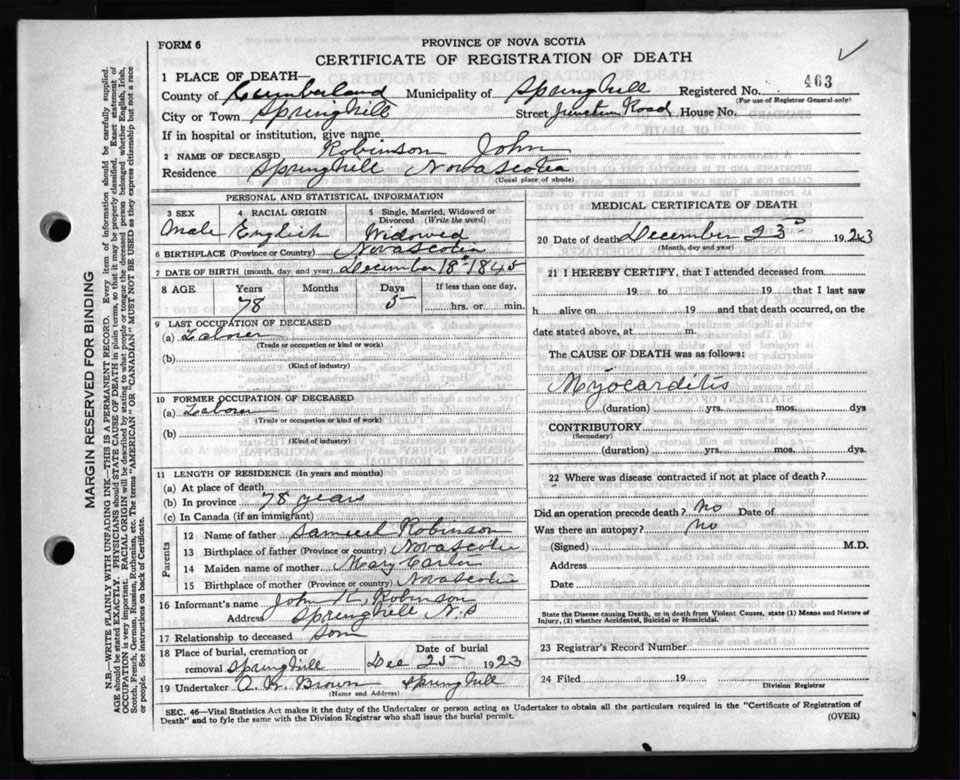 FORM 6
PROVINCE OF NOVA SCOTIA
CERTIFICATE OF REGISTRATION OF DEATH
1 PLACE OF DEATH—
County of Cumberland Municipality of Springhill Registered No. 463
(For use of Registrar General only)
City or Town Springhill Street Junction Road House No.
If in hospital or institution, give name
2 NAME OF DECEASED Robinson John
Residence Springhill Nova Scotia
(Usual place of abode)
PERSONAL AND STATISTICAL INFORMATION
3 SEX 4 RACIAL ORIGIN 5 Single, Married, Widowed or Divorced (Write the word)
Male English Widowed
6 BIRTHPLACE (Province or Country) Nova Scotia
7 DATE OF BIRTH (month, day and year) December 18th 1845
8 AGE Years Months Days If less than one day,
78 5 hrs. or min.
9 LAST OCCUPATION OF DECEASED
(a) Laborer
(Trade or occupation or kind or work)
(b)
(Kind of industry)
10 FORMER OCCUPATION OF DECEASED
(a) Laborer
(Trade or occupation or kind of work)
(b)
(Kind of industry)
11 LENGTH OF RESIDENCE (In years and months)
(a) At place of death
(b) In province 78 years
(c) In Canada (if an immigrant)
Parents
12 Name of father Samuel Robinson
13 Birthplace of father (Province or country) Nova Scotia
14 Maiden name of mother Mary
15 Birthplace of mother (Province or country) Nova Scotia
16 Informant's name John Robinson
Address Springhill N.S
17 Relationship to deceased Son
18 Place of burial, cremation or removal Springhill Date of burial Dec 25 1923
19 Undertaker Brown Springhill
(Name and Address)
MEDICAL CERTIFICATE OF DEATH
20 Date of death December 23 1923
(Month, day and year)
21 I HEREBY CERTIFY, that I attended deceased from
19 to 19 that I last saw
h alive on 19 and that death occurred, on the
date stated above, at m.
The CAUSE OF DEATH was as follows:
Myocarditis
(duration) yrs. mos. dys
CONTRIBUTORY
(Secondary)
(duration) yrs. mos. dys.
22 Where was disease contracted if not at place of death?
Did an operation precede death? No Date of
Was there an autopsy? No
(Signed) M.D.
Address
Date
State the Disease causing Death, or in death from Violent Causes, state (1) Means and Nature of
Injury, (2) whether Accidental, Suicidal or Homicidal.
23 Registrar's Record Number
24 Filed 19
Division Registrar
SEC. 46—Vital Statistics Act makes it the duty of the Undertaker or person acting as Undertaker to obtain all the particulars required in the "Certificate of Registration of
Death" and to fyle the same with the Division Registrar who shall issue the burial permit.
(OVER)
MARGIN RESERVED FOR BINDING
N.B.—WRITE PLAINLY WITH UNFADING INK—THIS IS A PERMANENT RECORD. Every item of information should be carefully supplied.
AGE should be stated EXACTLY. PHYSICIANS should STATE CAUSE OF DEATH in plain terms, so that it may be properly classified. Exact statement of
OCCUPATION is very important. RACIAL ORIGIN will be described by stating to what people or tongue the deceased person belonged whether English, Irish,
Scotch, French, German, Russian, Ruthenian, etc. The terms "AMERICAN" OR "CANADIAN" MUST NOT BE USED as they express citizenship but not a race
or people. See instructions on back of Certificate.